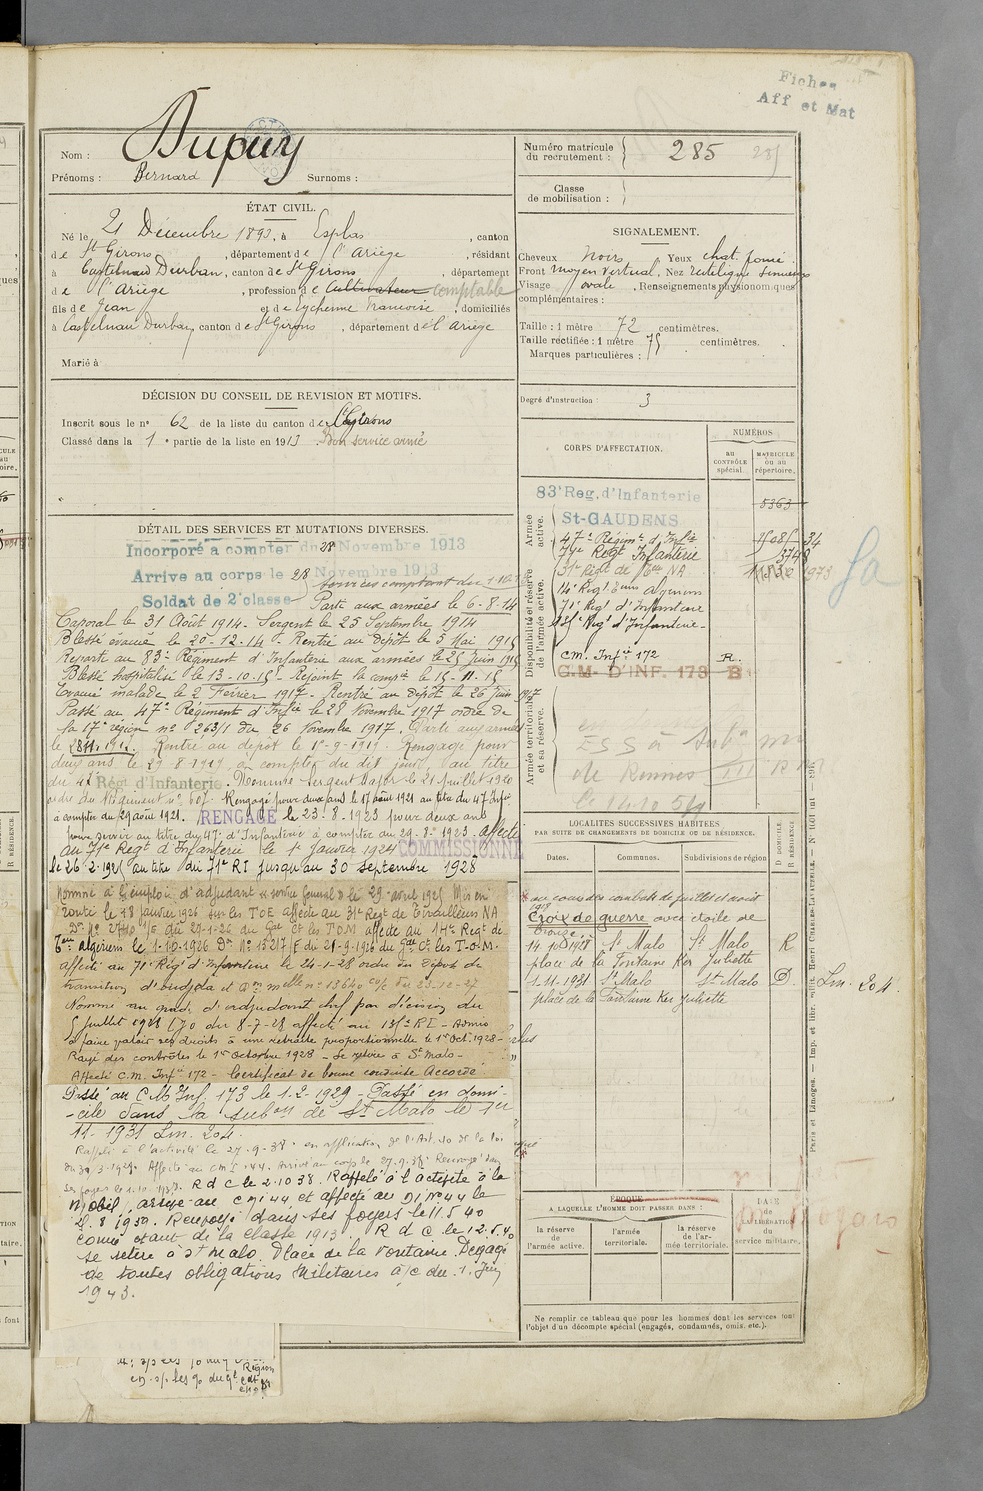 Fiches
Aff et Mat
Nom : Dupuy
Prénoms : Bernard Surnoms :
Numéro matricule du recrutement : 285
Classe de mobilisation :
ÉTAT CIVIL.
Né le 21 Décembre 1893, à Esplas, canton
de St Girons, département de l'Ariège, résidant
à Castelnau Durban, canton de St Girons, département
de l'Ariège, profession de Cultivateur comptable
fils de Jean et de Eychenne Francoise, domiciliés
à Castelnau Durban, canton de St Girons, département de l'Ariège
Marié à
SIGNALEMENT.
Cheveux Noirs Yeux chat. foncé
Front moyen vertical, Nez rectiligne
Visage ovale, Renseignements physionomiques
complémentaires :
Taille : 1 mètre 72 centimètres.
Taille rectifiée : 1 mètre 75 centimètres.
Marques particulières :
DÉCISION DU CONSEIL DE REVISION ET MOTIFS.
Inscrit sous le n° 62 de la liste du canton de St Girons
Classé dans la 1e partie de la liste en 1913 Bon service armé
Degré d'instruction : 3
CORPS D'AFFECTATION.
NUMÉROS
AU CONTRÔLE spécial.
MATRICULE ou au répertoire.
Armée active.
Disponibilité et réserve de l'armée active.
Armée territoriale et sa réserve.
83e Reg. d'Infanterie 5363
St-GAUDENS
47e Régimt d'Infie
71e Regt Infanterie
31e Regt de Tirs NA
14e Regt Tirs Algeriens
71e Regt d'Infanterie
Regt d'Infanterie
CM. Infie 172 R.
C.M. D'INF. 173 B
de Rennes
DÉTAIL DES SERVICES ET MUTATIONS DIVERSES.
Incorporé à compter du 28 Novembre 1913
Arrivé au corps le 28 Novembre 1913
Soldat de 2e classe
Parti aux armées le 6-8-14
Caporal le 31 Août 1914 - Sergent le 25 Septembre 1914
Blessé évacué le 20-12-14 - Rentré au Dépôt le 5 Mai 1915
Reparti au 83e Régiment d'Infanterie aux armées le 25 Juin 1915
Blessé hospitalisé le 13-10-15 - Rejoint la compie le 15-11-15
Evacué malade le 2 Février 1917 - Rentré au dépôt le 26 Juin 1917
Passé au 47e Régiment d'Infie le 28 Novembre 1917 ordre de
la 17e région n° 263/1 du 26 Novembre 1917. Parti aux armées
le Rentré au dépôt le 1-9-1919. Rengagé pour
deux ans le 29-8-1919 à compter du dit jour au titre
du 47 Régt d'Infanterie. Nommé Sergent Major le 21 Juillet 1920
ordre du Régiment n° 607. Rengagé pour deux ans le 17 août 1921 au titre du 47 Infie
à compter du 29 août 1921. RENGAGÉ le 23.8.1923 pour deux ans
pour servir au titre du 47e d'Infanterie à compter du 29-8-1923. affecté
au 71e Regt d'Infanterie le 1er Janvier 1924 COMMISSIONNÉ
le 26-2-1925 au titre du 71e RI jusqu'au 30 septembre 1928
Nommé à l'emploi d'adjudant de service Général le 29 avril 1925 Mis en
route le 18 janvier 1926 sur les TOE affecté au 31e Regt de Tirailleurs NA
du 29-1-26 du Gal Ct les TOM affecté au 14e Regt de
Tirs algeriens le 1-10-1926 Dn N° 15217/E du 21-9-1926 du Gal Ct les T-O-M-
affecté au 71e Régt d'Infanterie le 24-1-28 ordre du Dépôt de
transition d'oudjda et Dn melle n° 13640 du 23-12-27
Nommé au grade d'adjudant chef par décision du
5 juillet 1928 du 8-7-28 affecté au RI - Admis
à faire valoir ses droits à une retraite proportionnelle le 1er Oct. 1928 -
Rayé des contrôles le 1er Octobre 1928 - se retire à St Malo -
Affecté C.M. Infie 172 - Certificat de bonne conduite Accordé
Passé au C M Inf. 173 le 1-2-1929 - Passé en domi-
-cile dans la subon de St Malo le 1er
11-1931 Lm. 204.
Rappelé à l'activité le 27-9-38 en application de l'Art. 40 de la loi
Affecté au CMI 44. Arrivé au corps le 27.9.38 Renvoyé dans
ses foyers R d C le 2.10.38. Rappelé à l'activité à la
Mobil, arrivé au CMI 44 et affecté au DI N° 44 le
1939. Renvoyé dans ses foyers le 11.5.40
comme étant de la classe 1913. R d C le 12.5.40
se retire à St Malo, Place de la Fontaine. Dégagé
de toutes obligations Militaires à/c du 1. Juin
1943.
LOCALITÉS SUCCESSIVES HABITÉES
PAR SUITE DE CHANGEMENTS DE DOMICILE OU DE RÉSIDENCE.
Dates. Communes. Subdivisions de région
D DOMICILE R RÉSIDENCE.
au cours des combats de juillet et août
1918
Croix de guerre avec étoile de
bronze
1928 St Malo St Malo R
place de la Fontaine Ker Juliette
1-11-1931 St Malo St Malo D Lm. 204.
place de la Fontaine Ker Juliette
ÉPOQUE
A LAQUELLE L'HOMME DOIT PASSER DANS :
la réserve de l'armée active.
l'armée territoriale.
la réserve de l'armée territoriale.
DATE de la LIBÉRATION du service militaire.
Ne remplir ce tableau que pour les hommes dont les services font
l'objet d'un décompte spécial (engagés, condamnés, omis, etc.).
Paris et Limoges. — Imp. et libr. milit. Henri Charles-Lavauzelle.
Région